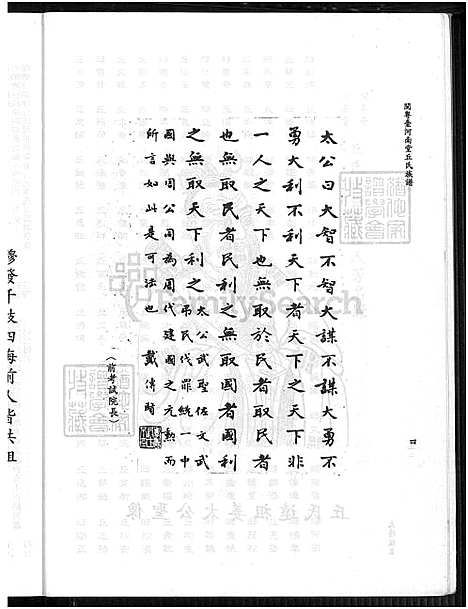 閩粵臺河南堂丘氏族譜
太公曰大智不智大謀不謀大勇不
勇大利不利天下者天下之天下非
一人之天下也無取於民者取民者
也無取民者民利之無取國者國利
之無取天下者天下利之
太公武聖佐文武
弔民伐罪統一中
國與周公同為周代建國之元勳而
所言如此是可法也 戴傳賢
(前考試院長)
四
丘氏遠祖姜太公聖像
FamilySearch
發千枝四海前人皆共祖